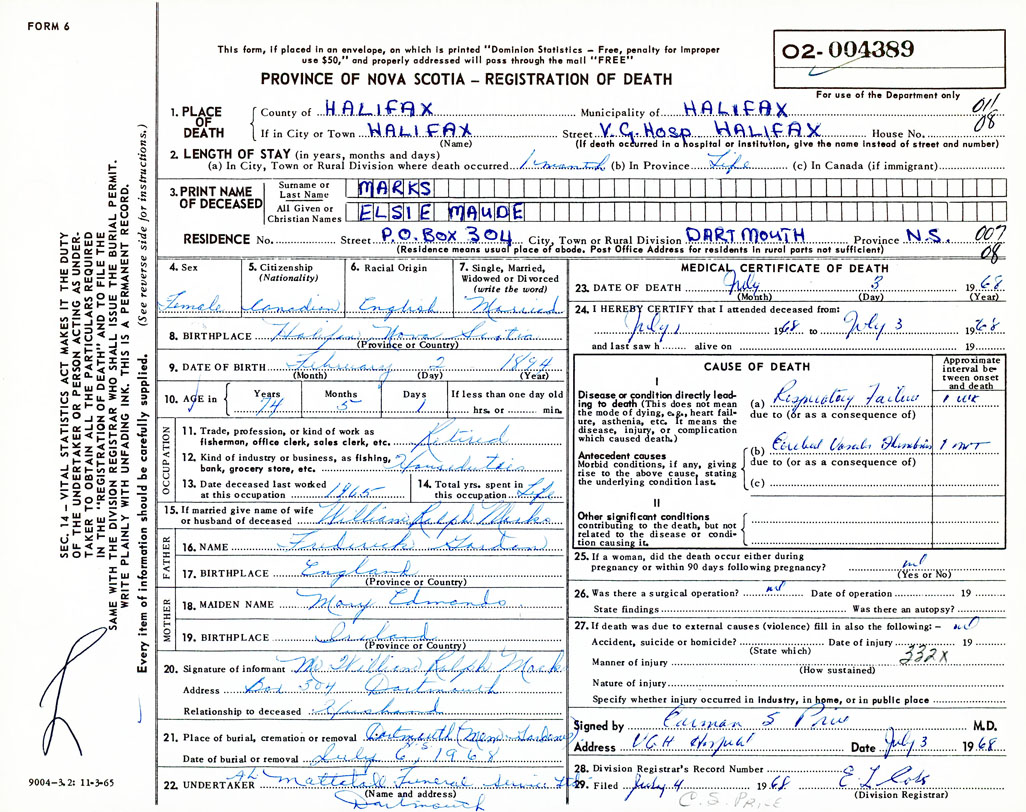 FORM 6
This form, if placed in an envelope, on which is printed "Dominion Statistics – Free, penalty for improper
use $50," and properly addressed will pass through the mail "FREE"
PROVINCE OF NOVA SCOTIA – REGISTRATION OF DEATH
02-004389
For use of the Department only
1. PLACE OF DEATH
County of HALIFAX Municipality of HALIFAX 011
If in City or Town HALIFAX Street V.G. Hosp HALIFAX House No. 08
(Name) (If death occurred in a hospital or institution, give the name instead of street and number)
2. LENGTH OF STAY (in years, months and days)
(a) In City, Town or Rural Division where death occurred 1 month (b) In Province Life (c) In Canada (if immigrant)
3. PRINT NAME OF DECEASED
Surname or Last Name MARKS
All Given or Christian Names ELSIE MAUDE
RESIDENCE No. Street P.O. Box 304 City, Town or Rural Division DARTMOUTH Province N.S. 007
(Residence means usual place of abode. Post Office Address for residents in rural parts not sufficient) 08
SEC. 14 – VITAL STATISTICS ACT MAKES IT THE DUTY
OF THE UNDERTAKER OR PERSON ACTING AS UNDER-
TAKER TO OBTAIN ALL THE PARTICULARS REQUIRED
IN THE "REGISTRATION OF DEATH" AND TO FILE THE
SAME WITH THE DIVISION REGISTRAR WHO SHALL ISSUE THE BURIAL PERMIT.
WRITE PLAINLY WITH UNFADING INK. THIS IS A PERMANENT RECORD.
Every item of information should be carefully supplied. (See reverse side for instructions.)
4. Sex Female
5. Citizenship (Nationality) Canadian
6. Racial Origin English
7. Single, Married, Widowed or Divorced (write the word) Married
8. BIRTHPLACE Halifax Nova Scotia
(Province or Country)
9. DATE OF BIRTH February 2 1894
(Month) (Day) (Year)
10. AGE in Years 74 Months 5 Days 1 If less than one day old hrs. or min.
OCCUPATION
11. Trade, profession, or kind of work as
fisherman, office clerk, sales clerk, etc. Retired
12. Kind of industry or business, as fishing,
bank, grocery store, etc. Houseduties
13. Date deceased last worked
at this occupation 1965
14. Total yrs. spent in
this occupation Life
15. If married give name of wife
or husband of deceased William Ralph Marks
FATHER
16. NAME Frederick Gordon
17. BIRTHPLACE England
(Province or Country)
MOTHER
18. MAIDEN NAME Mary Edmonds
19. BIRTHPLACE Ireland
(Province or Country)
20. Signature of informant Mr William Ralph Marks
Address Box 304 Dartmouth
Relationship to deceased Husband
21. Place of burial, cremation or removal Dartmouth (Mem. Gardens) N.S.
Date of burial or removal July 6, 1968
22. UNDERTAKER Mattatall Funeral Service Ltd
(Name and address)
Dartmouth
9004-3.2: 11-3-65
MEDICAL CERTIFICATE OF DEATH
23. DATE OF DEATH July 3 1968
(Month) (Day) (Year)
24. I HEREBY CERTIFY that I attended deceased from:
July 1 1968 to July 3 1968
and last saw h alive on 19
CAUSE OF DEATH
Approximate interval between onset and death
I
Disease or condition directly lead-
ing to death (This does not mean
the mode of dying, e.g., heart fail-
ure, asthenia, etc. It means the
disease, injury, or complication
which caused death.)
(a) Respiratory Failure 1 wk
due to (or as a consequence of)
Antecedent causes
Morbid conditions, if any, giving
rise to the above cause, stating
the underlying condition last.
(b) Thrombosis 1 mnt
due to (or as a consequence of)
(c)
II
Other significant conditions
contributing to the death, but not
related to the disease or condi-
tion causing it.
25. If a woman, did the death occur either during
pregnancy or within 90 days following pregnancy? nil
(Yes or No)
26. Was there a surgical operation? nil Date of operation 19
State findings Was there an autopsy?
27. If death was due to external causes (violence) fill in also the following: – nil
Accident, suicide or homicide? Date of injury 19
(State which) 332X
Manner of injury
(How sustained)
Nature of injury
Specify whether injury occurred in industry, in home, or in public place
Signed by Carman S Price M.D.
Address V.G.H Hospital Date July 3 1968
28. Division Registrar's Record Number
29. Filed July 4 1968
(Division Registrar)
C. S. PRICE